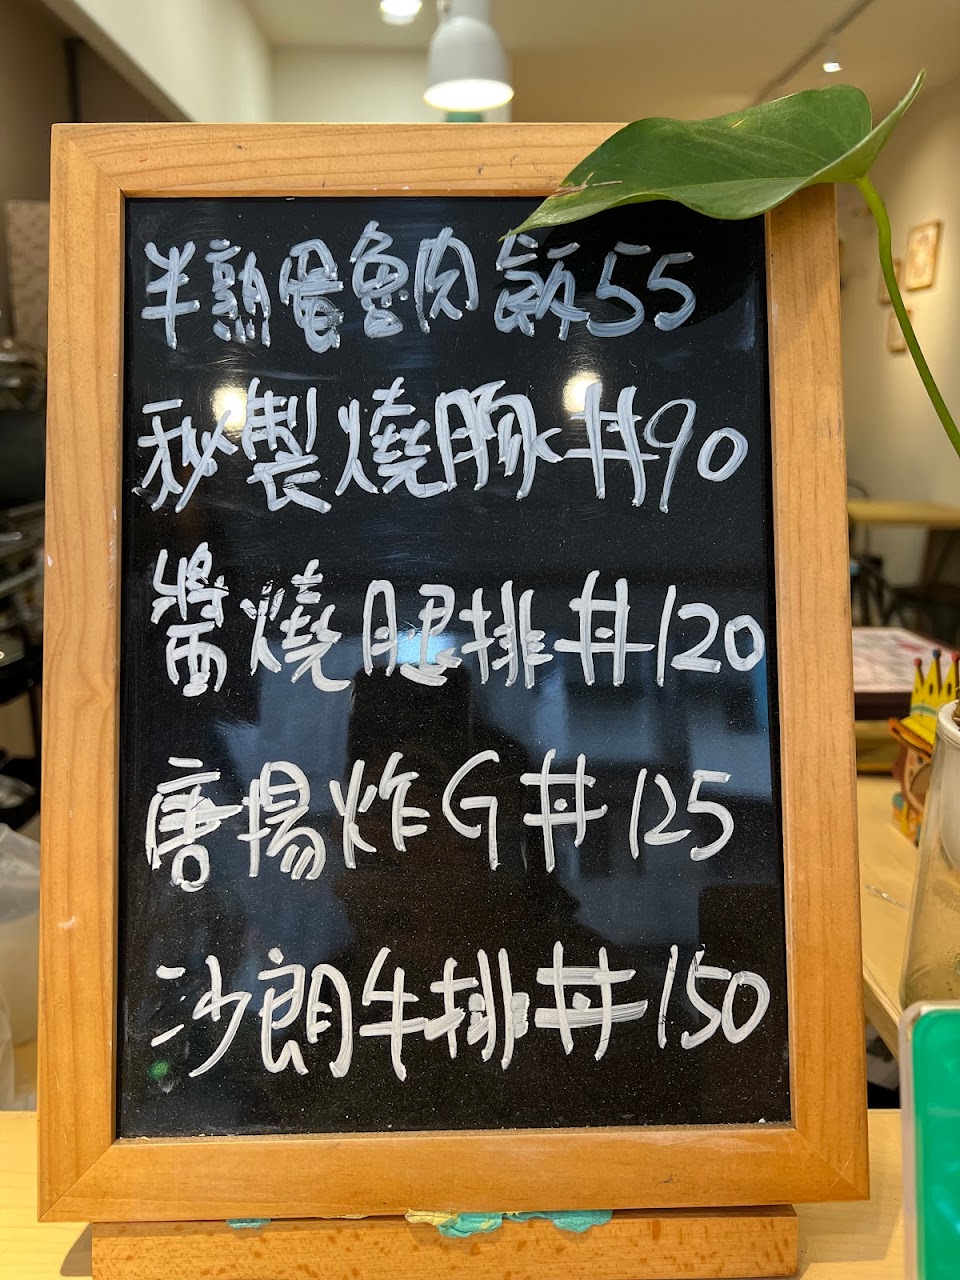 半熟蛋魯肉飯55
秘製燒豚丼90
醬燒腿排丼120
唐揚炸G丼125
沙朗牛排丼150